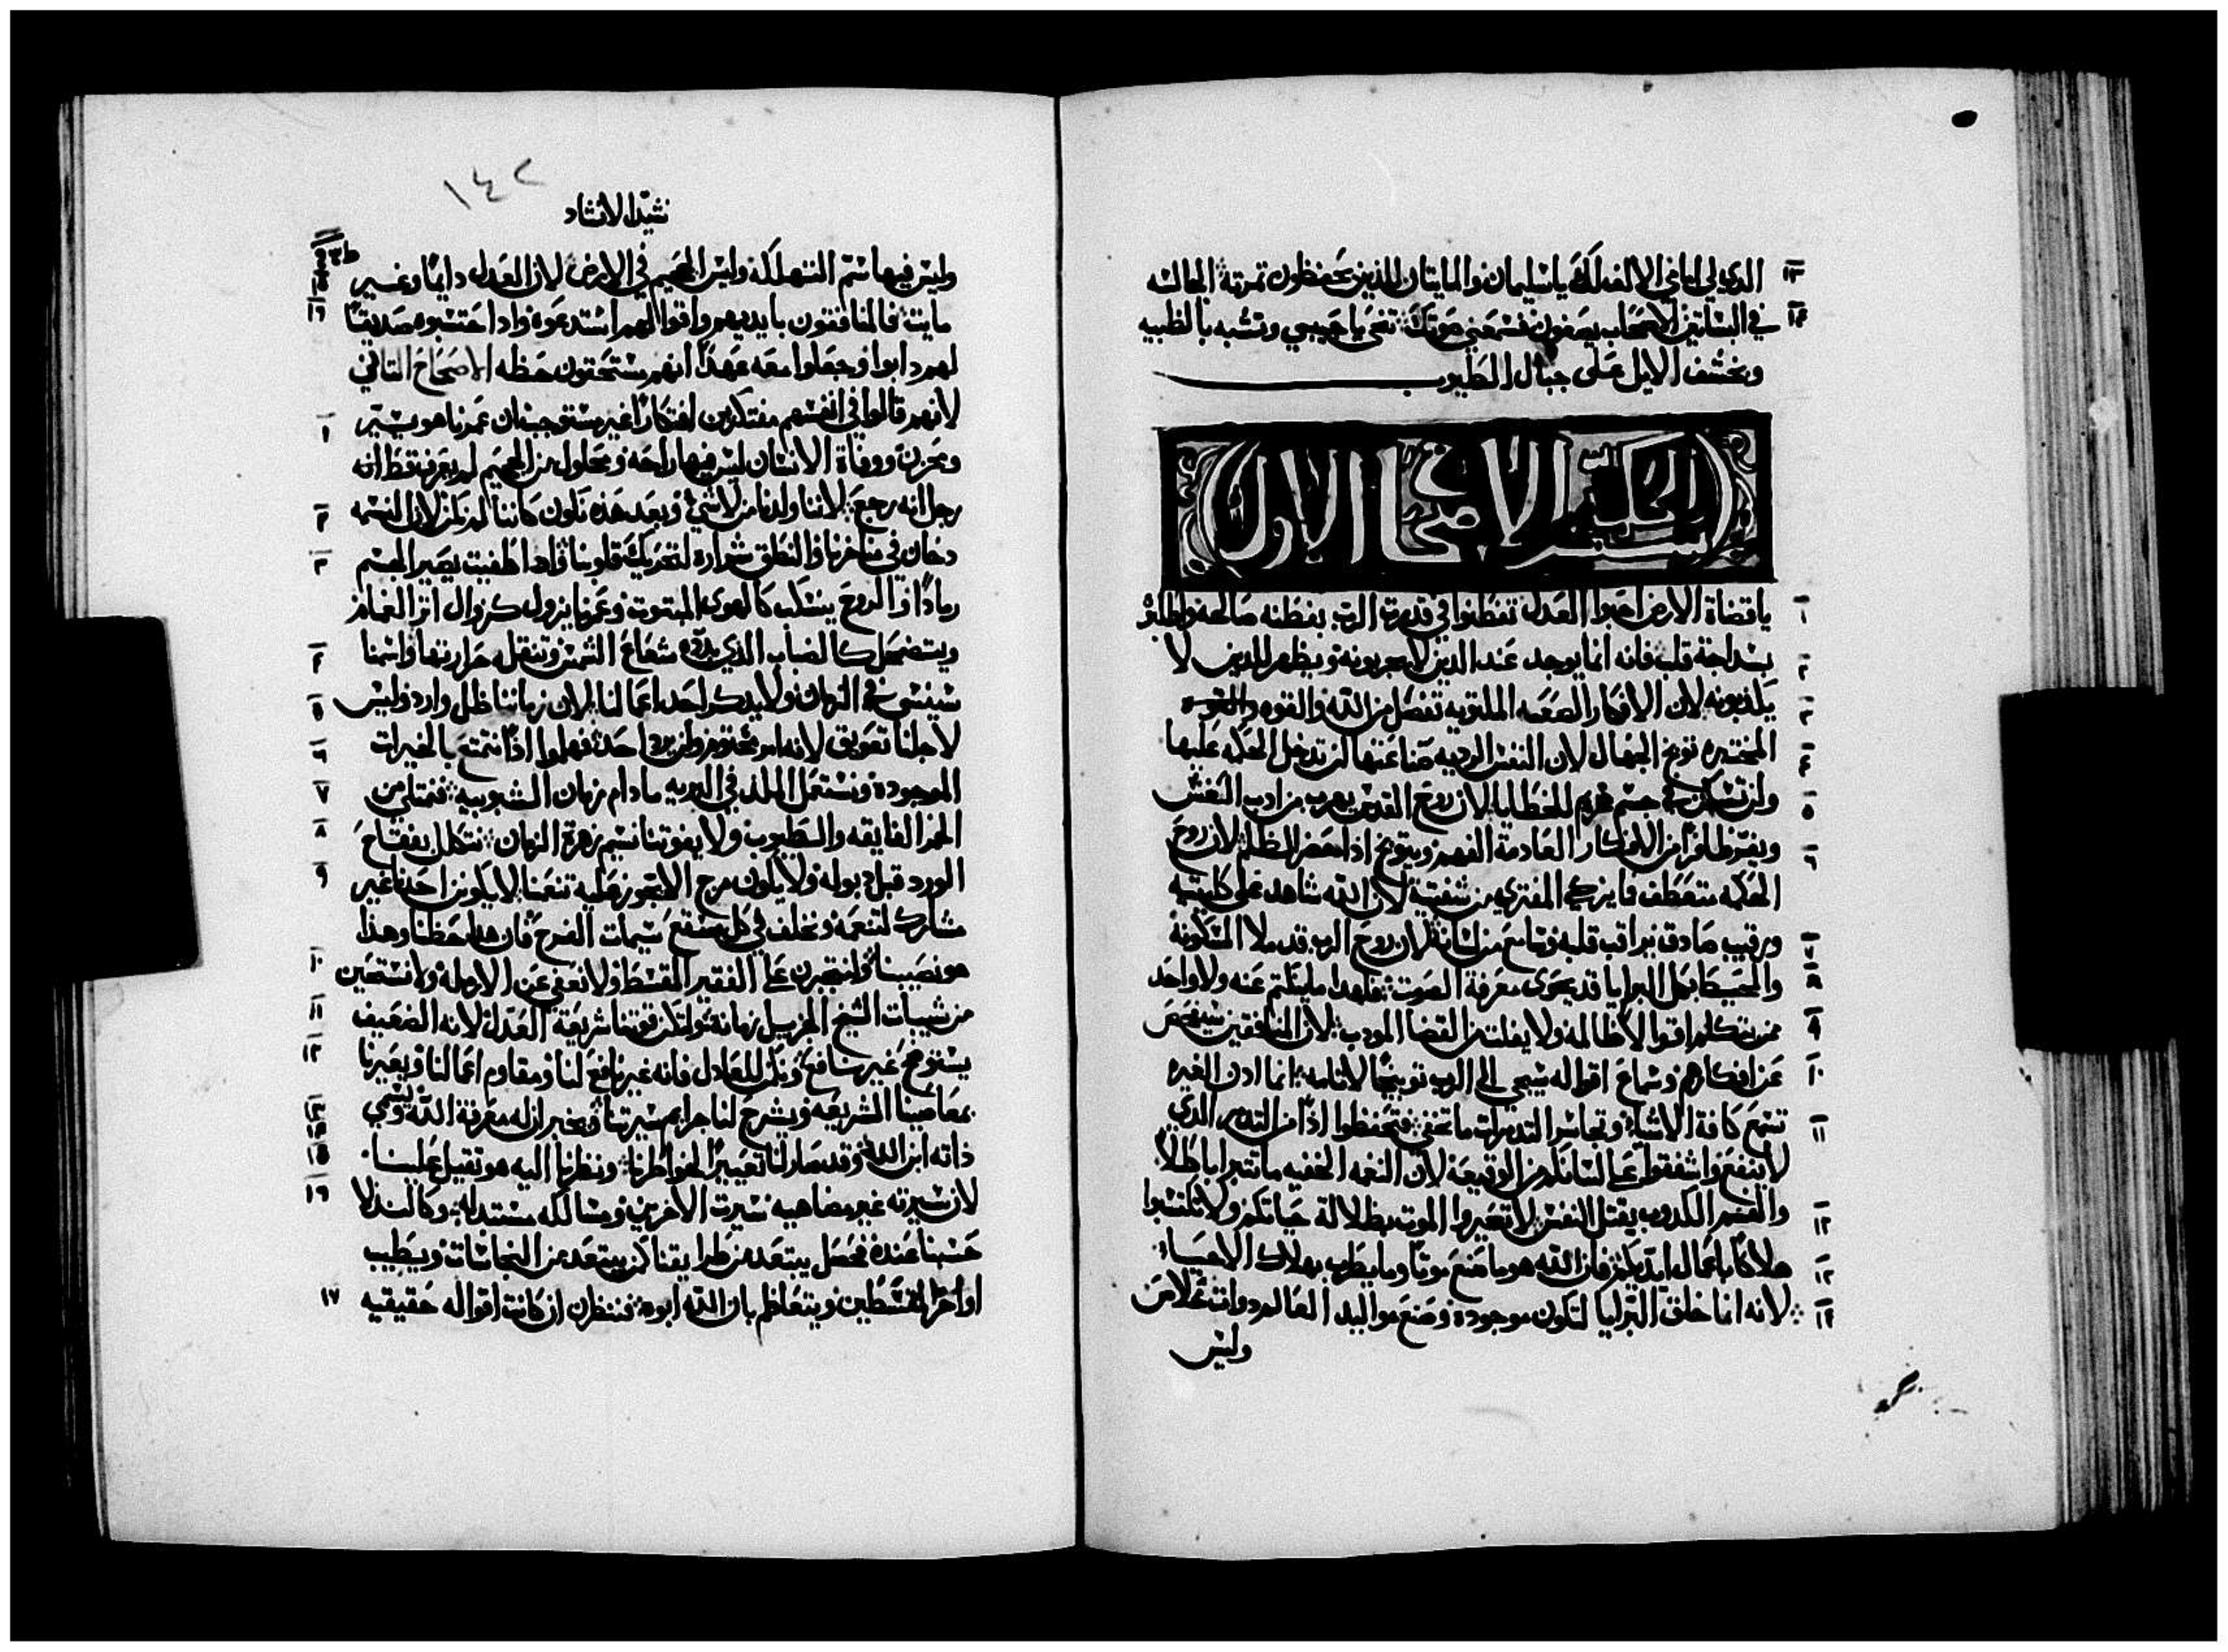 ١٣ الذي لي امامي الالف لك يا سليمان والمايتان للذين يحفظون تمرته الجالسه
١٤ في البساتين الاصحاب يصغون فسمعني صوتك تنحى يا حبيبي وتشبه بالظبيه
وبخشف الايل على جبال الطيوب
الاصحاح الاول
١ يا قضاة الارض احبوا العدل تفطنوا في قدرت الرب بفطنه صالحه واطلبوه
٢ بسداجة قلب فانه انما يوجد عند الدين لا يجربونه ويظهر للدين لا
٣ يكذبونه لان الافكار الصعبه الملتويه تفصل من الله والقوه
٤ المختبره توبخ الجهال لان النفس الرديه صناعتها لن تدخل الحكمه عليها
٥ ولن تسكن في جسم غريم للخطايا لان روح القدس يهرب من ادب الغش
٦ ويفر ظافرا من الافكار العادمة الفهم ويتوبخ ادا حضر الظلم لان روح
الحكمه متعطف فما يزكي المفتري من شفتيه لان الله شاهد على كليتيه
٧ ورقيب صادق يراقب قلبه وسامع من لسانه لان روح الرب قد ملا المسكونه
٨ والمحيط بكل البرايا قد يحوى معرفة الصوت فلهدا ما ينكتم عنه ولا واحد
٩ ممن يتكلم اقوالا ظالمه ولا يفلته القضا المودب لان المنافقين سيفحص
١٠ عن افكارهم وسماع اقواله سيجي الى الرب توبيخا لاثامه انما ادن الغيره
١١ تسمع كافة الاشيا وتجاسر التدمرات ما تخفى فتحفظوا ادا من التدمر الدي
لا ينفع واشفقوا على السانكم من الوقيعة لان النغمه الخفيه ما تتبرا باطلا
١٢ والفم الكدوب يقتل النفس لا تغيروا الموت بظلالة حياتكم ولا تكتسبوا
١٣ هلاكا باعمال ايديكم فان الله هو ما صنع موتا وما يطرب بهلاك الاحيا
١٤ لانه انما خلق البرايا لتكون موجوده وصنع مواليد العالم دوات خلاص
وليس
١٤٢
نشيد الانشاد
١٥ وليس فيها ستم التهلكه وليس الجحيم في الارض لان العدل دايما وغير
١٦ مايت فالمنافقون بايديهم واقوالهم استدعوه وادا حتسبوه صديقا
لهم دابوا وجعلوا معه عهدا انهم يستحقون حظه الاصحاح التاني
١ لانهم قالوا في انفسهم مفتكرين افتكارا غير مستوجب ان عمرنا هو يسير
ومحزن ووفاة الانسان ليس فيها راحه ومحلول من الجحيم لم يعرف قط انه
٢ رجل انه رجع لاننا ولدنا من لاشي وبعد هده نكون كاننا لم نكن لان النسمه
٣ دخان في مناخرنا والنطق شراره لتحريك قلوبنا وادا طفيت يصير الجسم
رمادا والروح ينسكب كالهوى المبتوت وعمرنا يزول كزوال اتر الغمام
٤ ويتضمحل كالضباب الذي بدده شعاع الشمس وتتقله حرارتها واسمنا
٥ سينسى في الزمان ولا يدكر احد اعمالنا لان زماننا ظل وارد وليس
٦ لاجلنا تعويق لانه امر مختوم ولن يرد احد فهلموا ادا نتمتع بالخيرات
٧ الموجوده ونستعمل الملك في البريه ما دام زمان الشبوبيه فنمتلي من
٨ الخمر الفايقه والطيوب ولا يفوتنا نسيم زهرة الزمان نتكلل بفقاح
٩ الورد قبل دبوله ولا يكون مرج الا يجوز عليه تنعمنا لا يكونن احدنا غير
مشارك لتنعمه ونخلف في كل موضع سيمات الفرح فان هدا حظنا وهدا
١٠ هو نصيبنا ولنتجبرن على الفقير المقسط ولا نعفي عن الارمله ولا نستحين
١١ من شيبات الشيخ الجزيل زمانه ولتكن قوتنا شريعة العدل لانه الضعيف
١٢ يستوضح غير نافع ونكمن للعادل فانه غير نافع لنا ومقاوم اعمالنا ويعيرنا
١٣ بمعاصينا الشريعه ويشرح لنا جرايم سيرتنا ويخبر ان له معرفة الله ويسمي
١٤ ١٥ ذاته ابن الله وقد صار لنا تعييرا لخواطرنا ونظرنا اليه هو تقيل علينا
١٦ لان سيرته غير مضاهيه سيرت الاخرين ومسالكه مستبدله وكالبدلا
حسبنا عنده فحصل يبتعد من طرايقنا كمن يبتعد من النجاسات ويطيب
١٧ اواخر المقسطين ويتعاظم بان الله ابوه فننظرن ان كانت اقواله حقيقيه